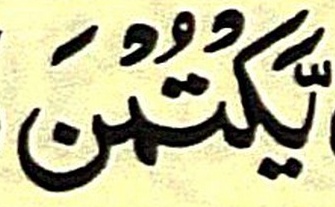 يَّكْتُمْنَ